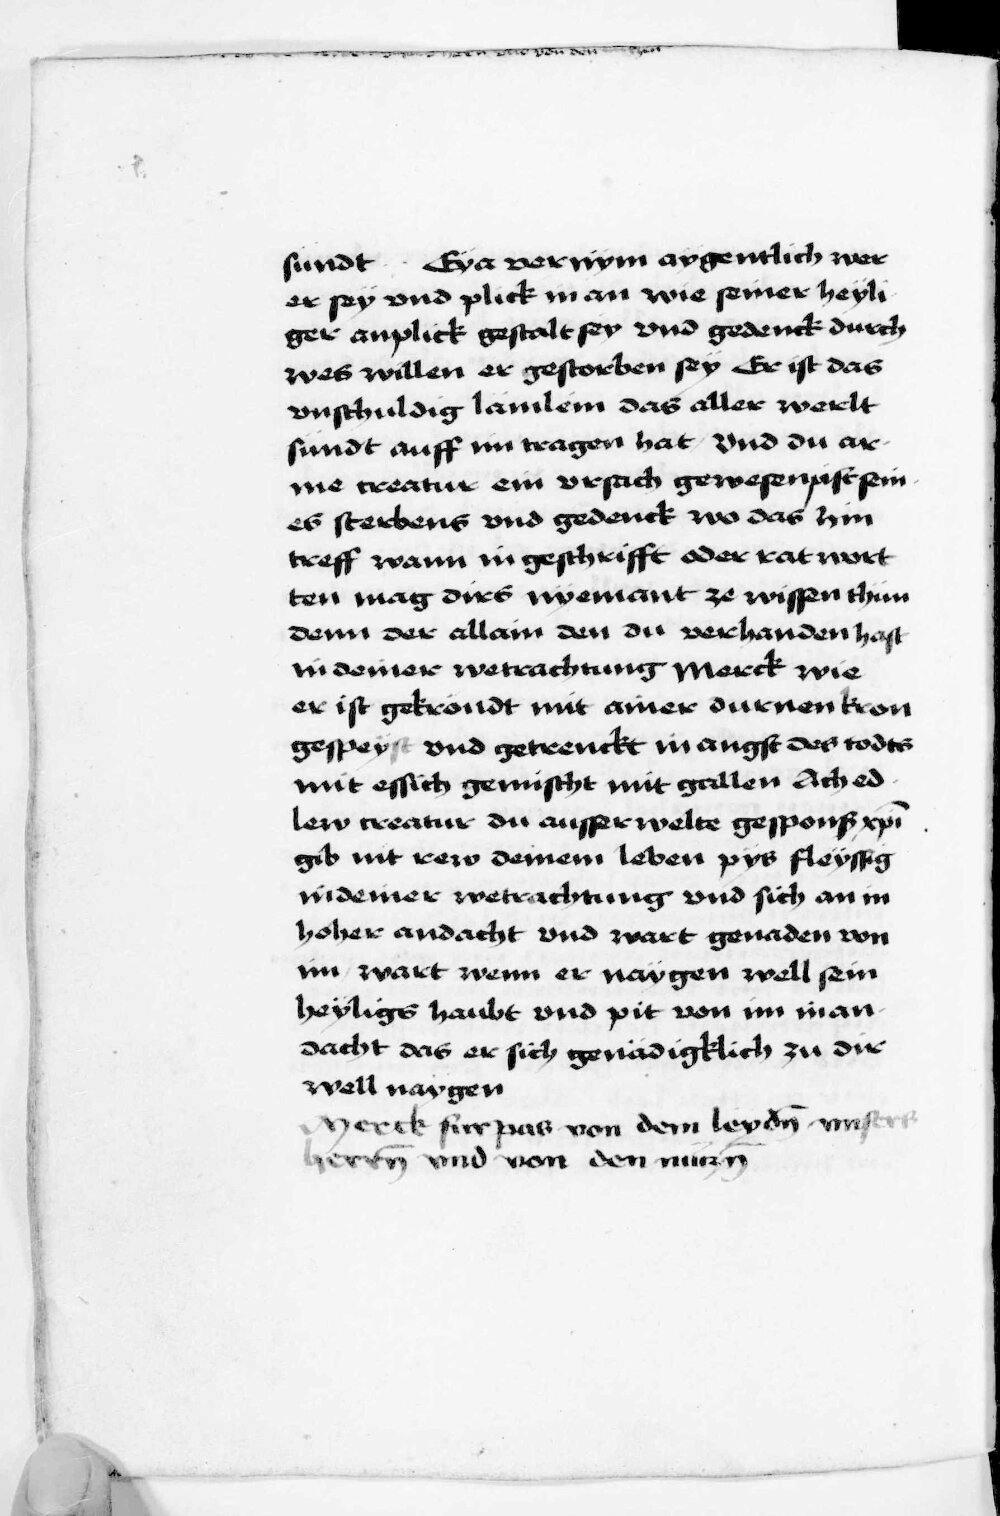 sündt Eya vernÿm aygentlich wer
er seÿ vnd plick in an wie seiner heÿli
ger anplick gestalt seÿ vnd gedenck durch
wes willen er gestorben seÿ Er ist das
vnschuldig lämlein das aller werlt
sündt auff im tragen hat Vnd du ar-
me creatur ein vrsach gewesen pist sein
es sterbens vnd gedenck wo das hin
treff wann in geschrifft oder rat wort
ten mag dirs nÿemant ze wissen thün
denn der allain den du verhanden hast
in deiner wetrachtung Merck wie
er ist gekröndt mit ainer durnen kron
gespeÿst vnd getrenckt in angst des todts
mit essich gemischt mit gallen Ach ed
lew creatur du ausserwelte gespons xp̄i
gib nit rew deinem leben pÿs fleÿssig
in deiner wetrachtung vnd sich an in
hoher andacht vnd wart genaden von
im wart wenn er naÿgen well sein
heÿligs haubt vnd pit von im in an
dacht das er sich genädigklich zu dir
well naÿgen
Merck fürpas von dem leydn̄ vnsers
herrn̄ vnd von den nüczn̄